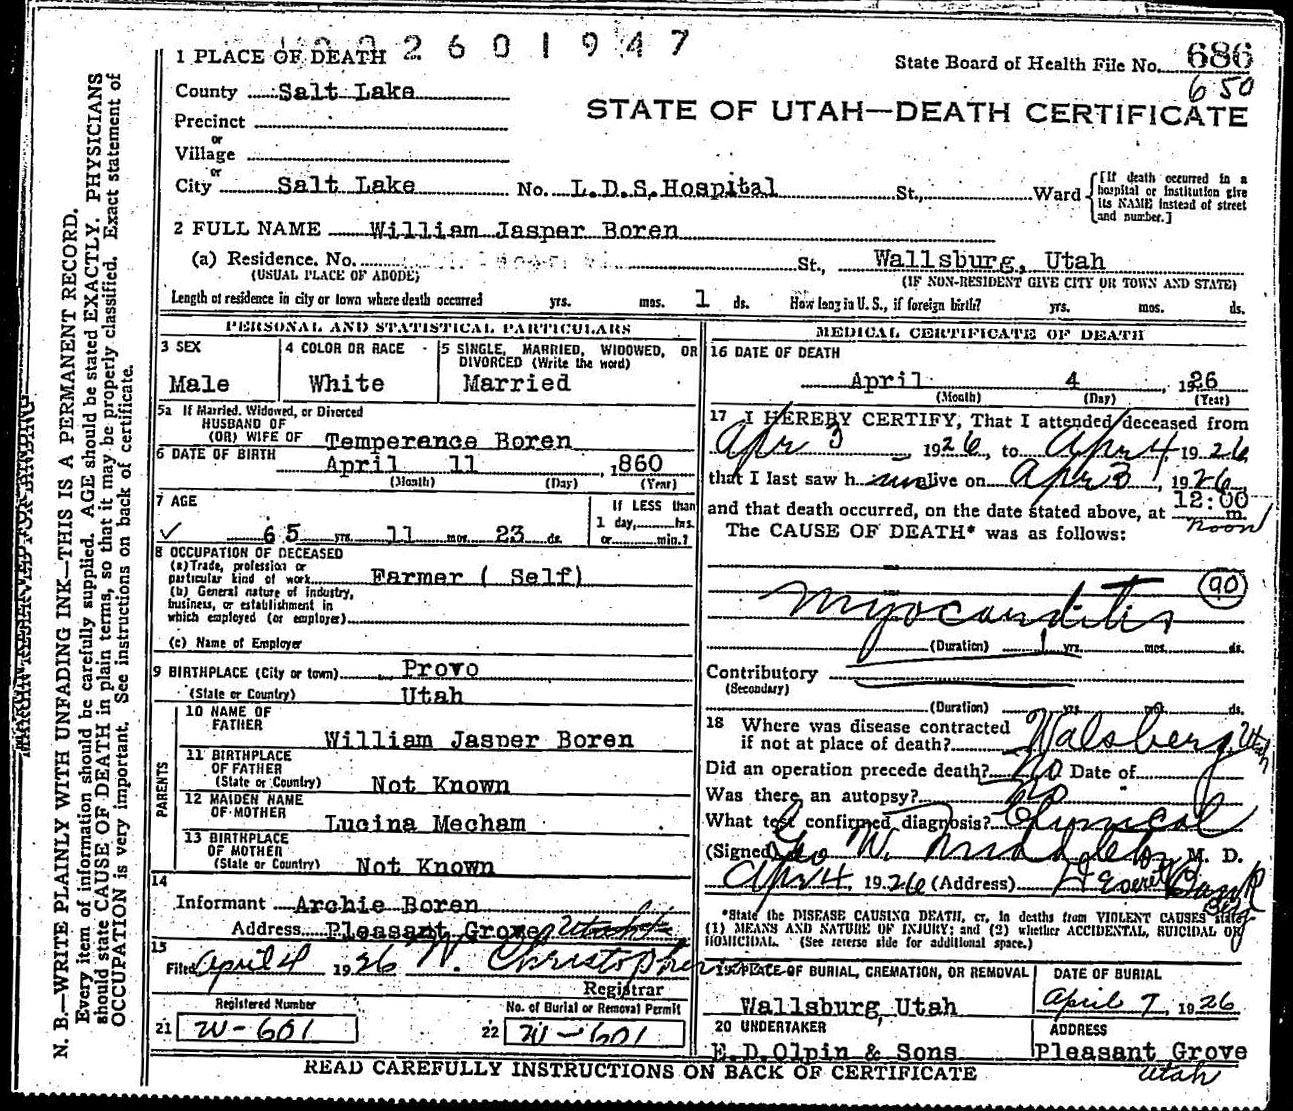 2601947
1 PLACE OF DEATH
State Board of Health File No. 686
650
County Salt Lake
STATE OF UTAH—DEATH CERTIFICATE
Precinct
or
Village
or
City Salt Lake No. L.D.S. Hospital St., Ward [If death occurred in a hospital or institution give its NAME instead of street and number.]
2 FULL NAME William Jasper Boren
(a) Residence. No. St., Wallsburg, Utah
(USUAL PLACE OF ABODE) (IF NON-RESIDENT GIVE CITY OR TOWN AND STATE)
Length of residence in city or town where death occurred yrs. mos. 1 ds. How long in U. S., if foreign birth? yrs. mos. ds.
PERSONAL AND STATISTICAL PARTICULARS
3 SEX
Male
4 COLOR OR RACE
White
5 SINGLE, MARRIED, WIDOWED, OR
DIVORCED (Write the word)
Married
5a If Married, Widowed, or Divorced
HUSBAND OF
(OR) WIFE OF Temperance Boren
6 DATE OF BIRTH April 11, 1860
(Month) (Day) (Year)
7 AGE
65 yrs. 11 mos. 23 ds.
If LESS than
1 day, hrs.
or min.?
8 OCCUPATION OF DECEASED
(a) Trade, profession or
particular kind of work Farmer ( Self)
(b) General nature of industry,
business, or establishment in
which employed (or employer)
(c) Name of Employer
9 BIRTHPLACE (City or town) Provo
(State or Country) Utah
PARENTS
10 NAME OF
FATHER
William Jasper Boren
11 BIRTHPLACE
OF FATHER
(State or Country) Not Known
12 MAIDEN NAME
OF MOTHER
Lucina Mecham
13 BIRTHPLACE
OF MOTHER
(State or Country) Not Known
14
Informant Archie Boren
Address Pleasant Grove, Utah
15
Filed April 4 1926 W. Christopher
Registrar
Registered Number
21 W-601
No. of Burial or Removal Permit
22 W-601
MEDICAL CERTIFICATE OF DEATH
16 DATE OF DEATH
April 4, 1926
(Month) (Day) (Year)
17 I HEREBY CERTIFY, That I attended deceased from
Apr 3, 1926, to Apr 4 1926
that I last saw him alive on Apr 3, 1926,
and that death occurred, on the date stated above, at 12:00 m.
noon
The CAUSE OF DEATH* was as follows:
90
Myocarditis
(Duration) 1 yrs. mos. ds.
Contributory
(Secondary)
(Duration) yrs. mos. ds.
18 Where was disease contracted
if not at place of death? Walsberg, Utah
Did an operation precede death? No Date of
Was there an autopsy? No
What test confirmed diagnosis? Clinical
(Signed) Geo W. Middleton, M. D.
Apr 4, 1926 (Address) Deseret Bank
*State the DISEASE CAUSING DEATH, or, in deaths from VIOLENT CAUSES state
(1) MEANS AND NATURE OF INJURY; and (2) whether ACCIDENTAL, SUICIDAL OR
HOMICIDAL. (See reverse side for additional space.)
19 PLACE OF BURIAL, CREMATION, OR REMOVAL
Wallsburg, Utah
DATE OF BURIAL
April 7, 1926
20 UNDERTAKER
E.D.Olpin & Sons
ADDRESS
Pleasant Grove
Utah
READ CAREFULLY INSTRUCTIONS ON BACK OF CERTIFICATE
MARGIN RESERVED FOR BINDING
N. B.—WRITE PLAINLY WITH UNFADING INK—THIS IS A PERMANENT RECORD.
Every item of information should be carefully supplied. AGE should be stated EXACTLY. PHYSICIANS
should state CAUSE OF DEATH in plain terms, so that it may be properly classified. Exact statement of
OCCUPATION is very important. See instructions on back of certificate.